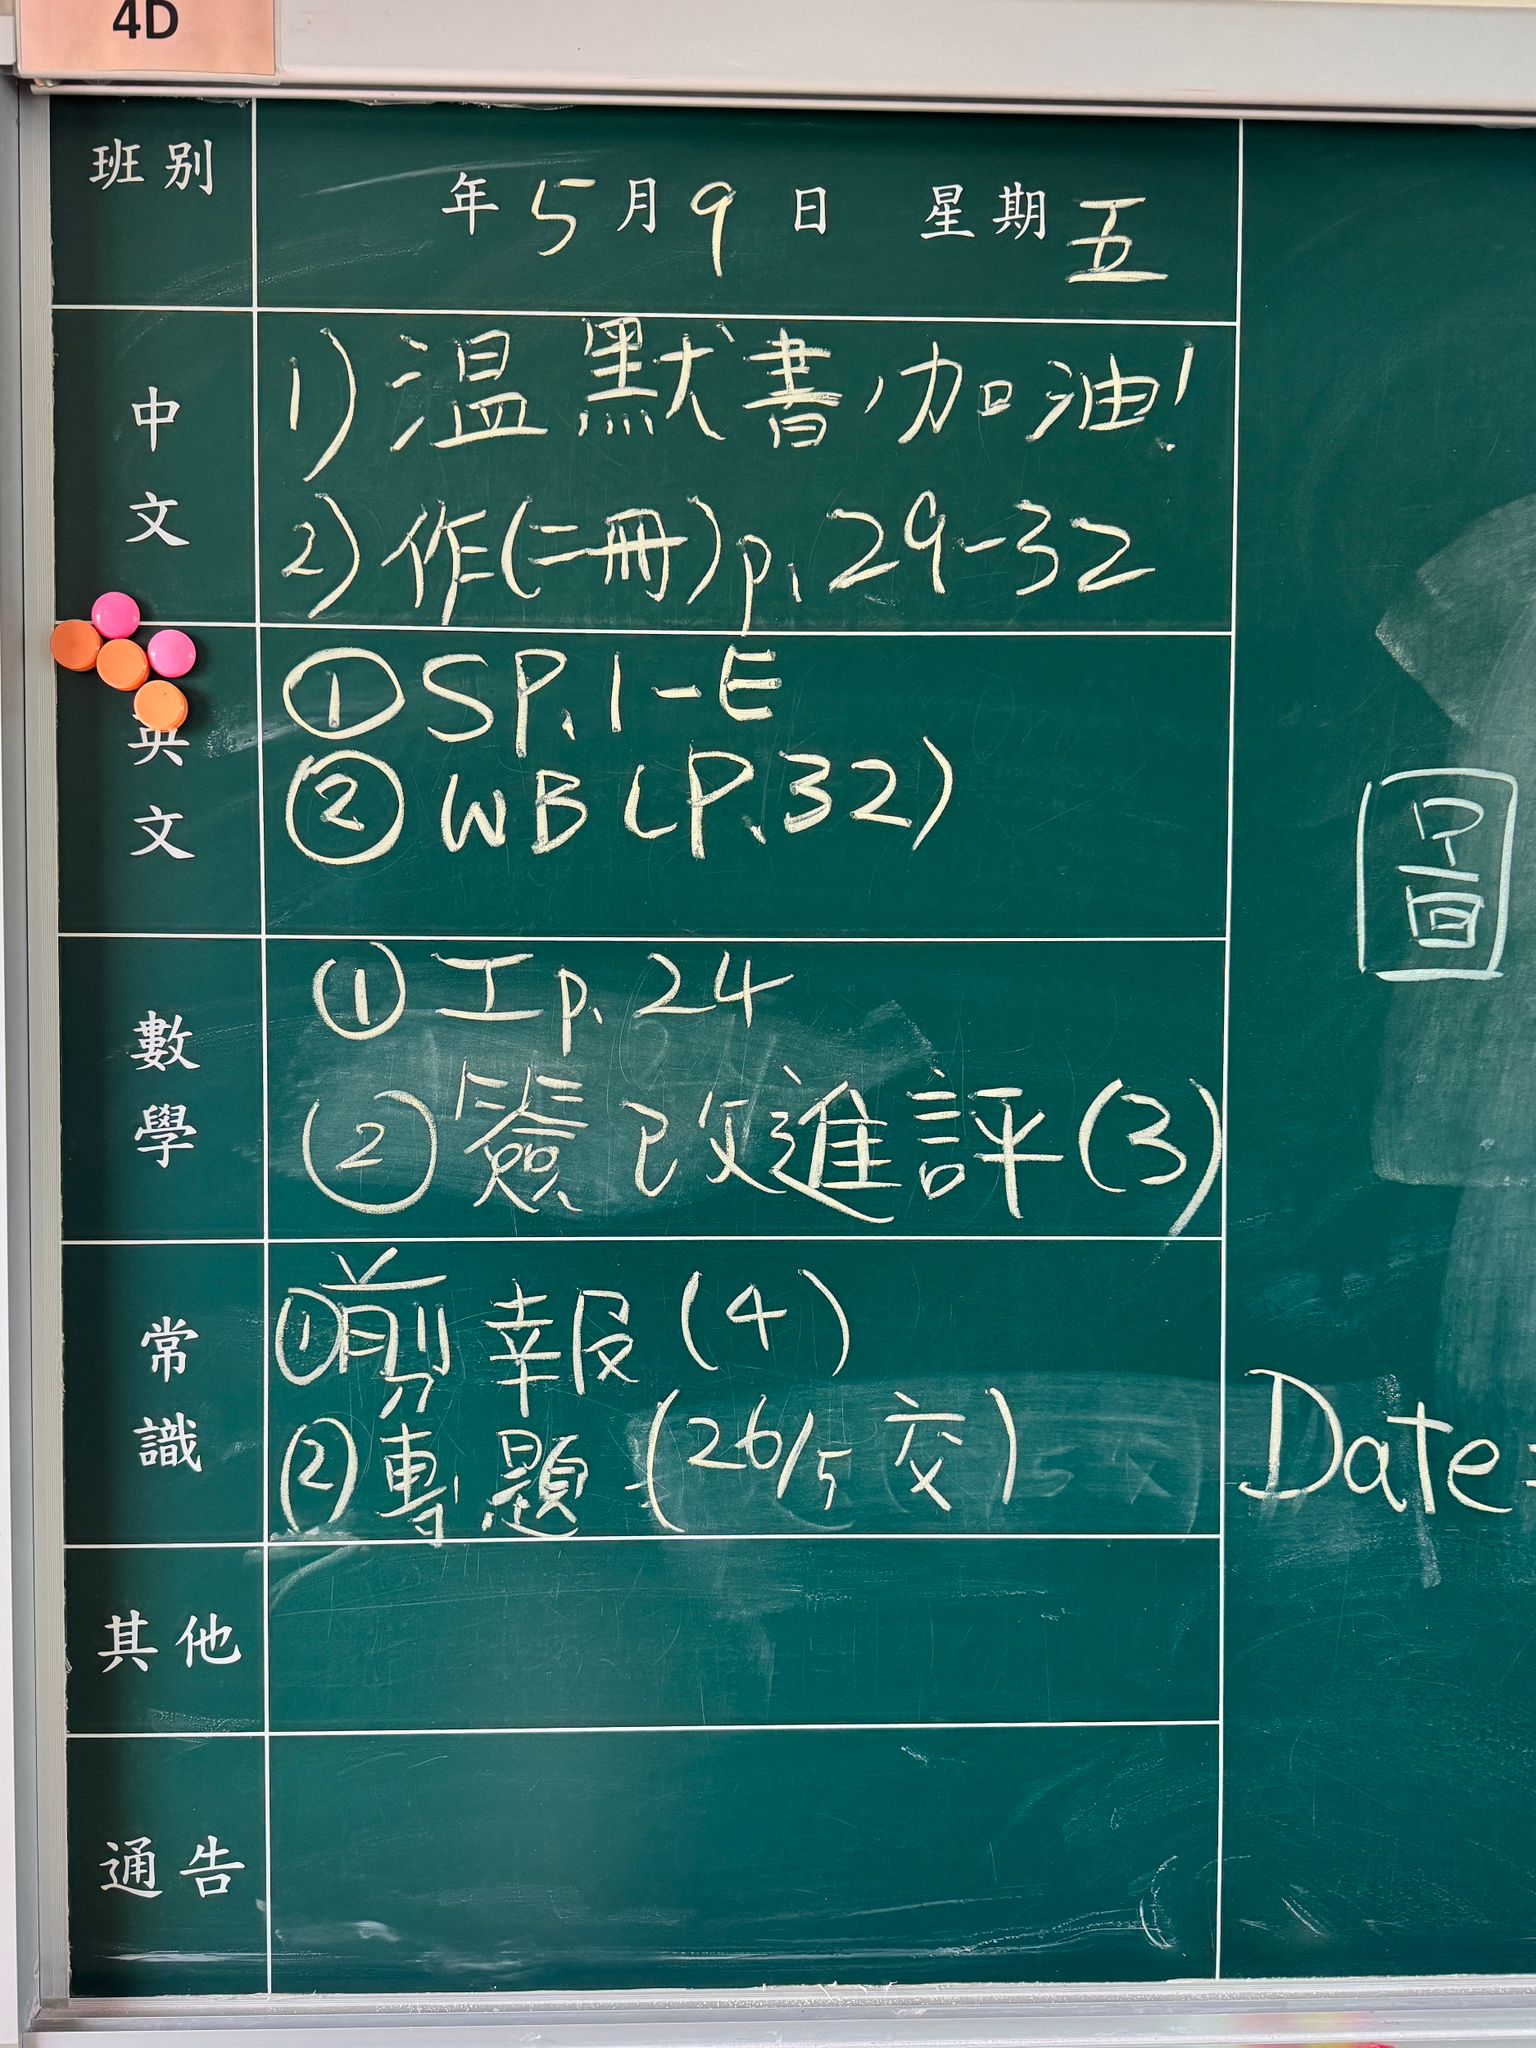 4D
班別
年 5 月 9 日 星期 五
中文
1) 溫默書,加油!
2) 作(二冊) p. 29-32
英文
① SP. 1-E
② WB (P.32)
數學
① 工 p. 24
② 簽已改進評(3)
常識
① 剪報 (4)
② 專題 (26/5 交)
Date
其他
通告